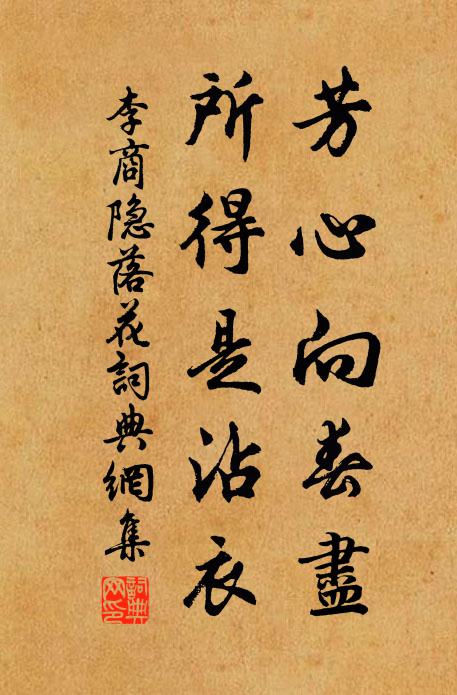 芳心向春盡
所得是沾衣
李商隐落花詞典網集
詞典網印